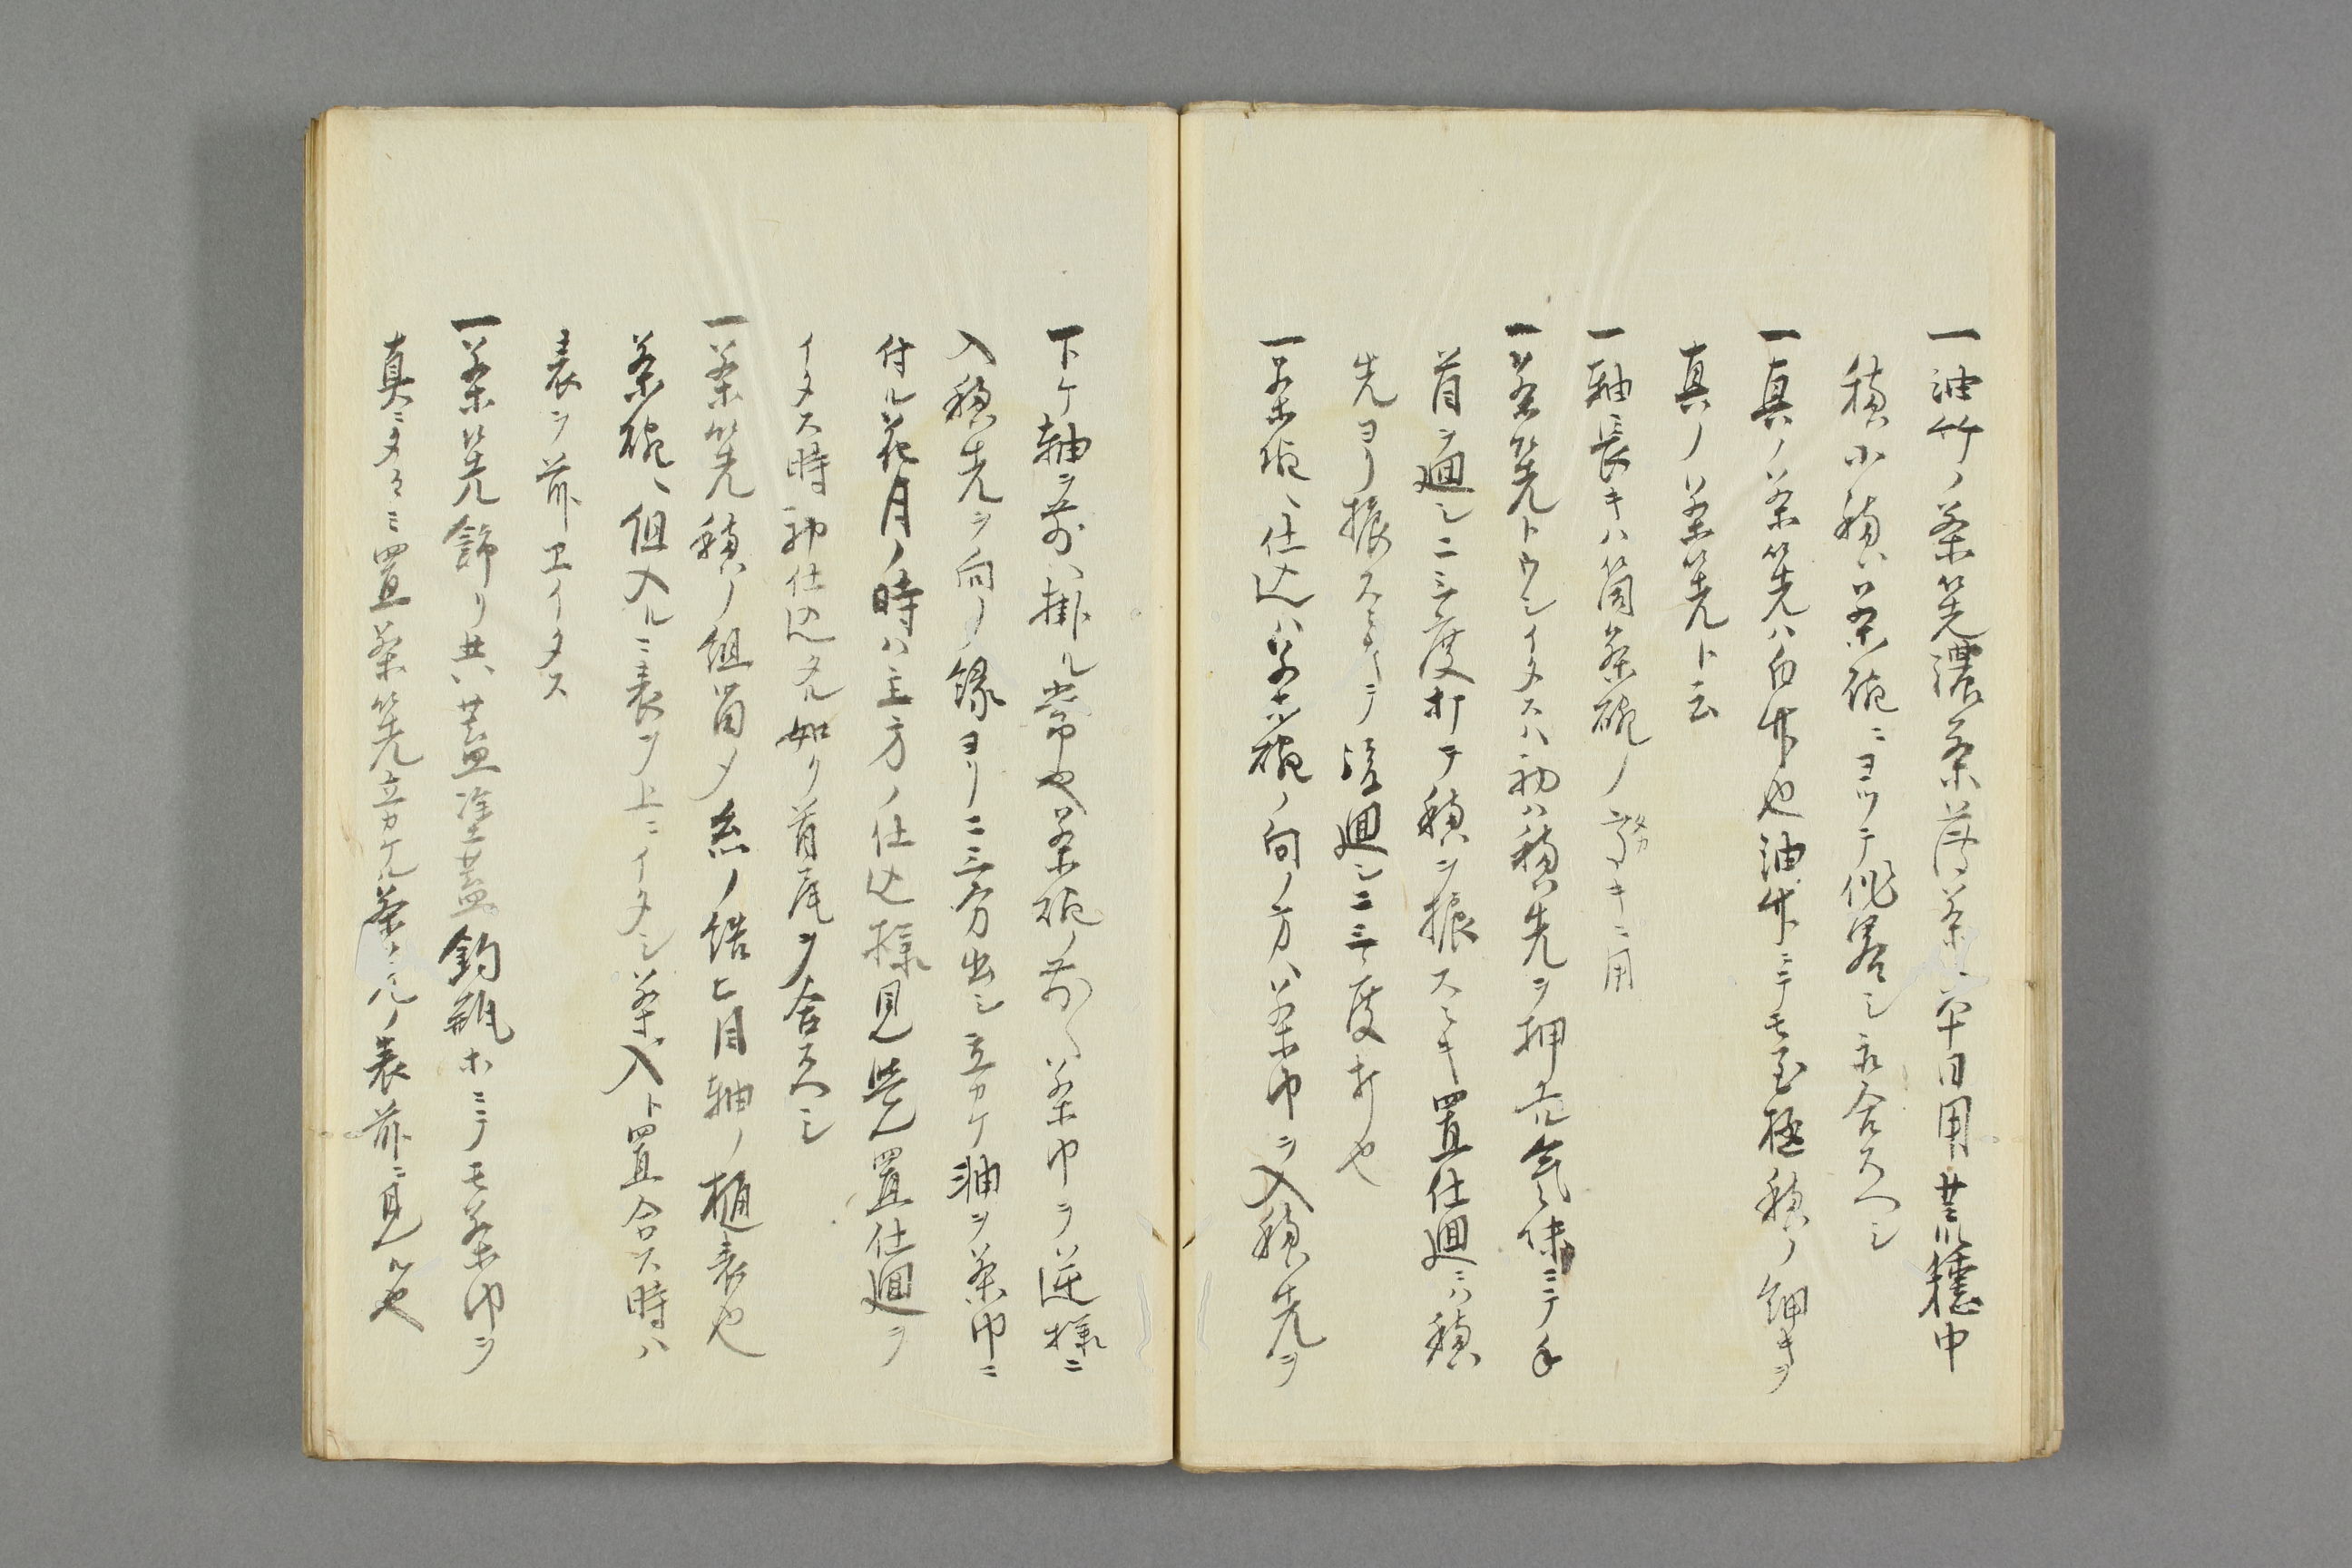 一油竹ノ茶筅濃茶薄茶ニ平日用荒穂中
穂小穂茶碗ニヨツテ恰好シ取合スヘシ
一真ノ茶筅ハ白竹也油竹ニテモ至極穂ノ細キヲ
真ノ茶筅ト云
一軸長キハ筒茶碗ノ深キニ用
一茶筅トウシイタスハ初ハ穂先ヲ押ル気味ニテ手
首ヲ廻シ二三度打テ穂ヲ振スヽキ置仕廻ニハ穂
先ヨリ振スヽキテ後廻シ二三度打也
一茶碗ヘ仕込ハ茶碗ノ向ノ方ヘ茶巾ヲ入穂先ヲ
下ケ軸ヲ前ヘ掛ル常也茶碗ノ前ヘ茶巾ヲ逆様ニ
入穂先ヲ向ノ縁ヨリ二三分出シ立カケ軸ヲ茶巾ニ
付ル花月ノ時ハ主方ノ仕込様見覚ヘ置仕廻ヲ
イタス時初仕込タル如ク首尾ヲ合スヘシ
一茶筅穂ノ組首ノ糸ノ結ヒ目軸ノ樋表也
茶碗ヘ組入ルニ表ヲ上ニイタシ茶入ト置合ス時ハ
表ヲ前エイタス
一茶筅飾リ共蓋塗蓋釣瓶ホニテモ茶巾ヲ
真ニタヽミ置茶筅立カケル茶筅ノ表前ニ見ルヤ